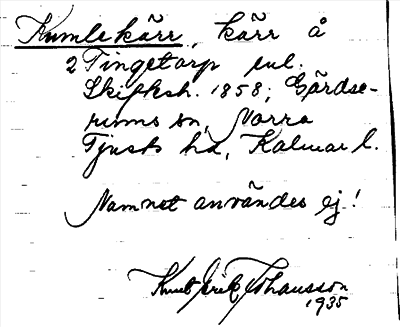 Kumlekärr, kärr å
2 Tingetorp enl.
Skifksh. 1858; Gärdse-
rums sn, Norra
Tjusts hd, Kalmar l.
Namnet användes ej!
Knut Erik Johansson
1935